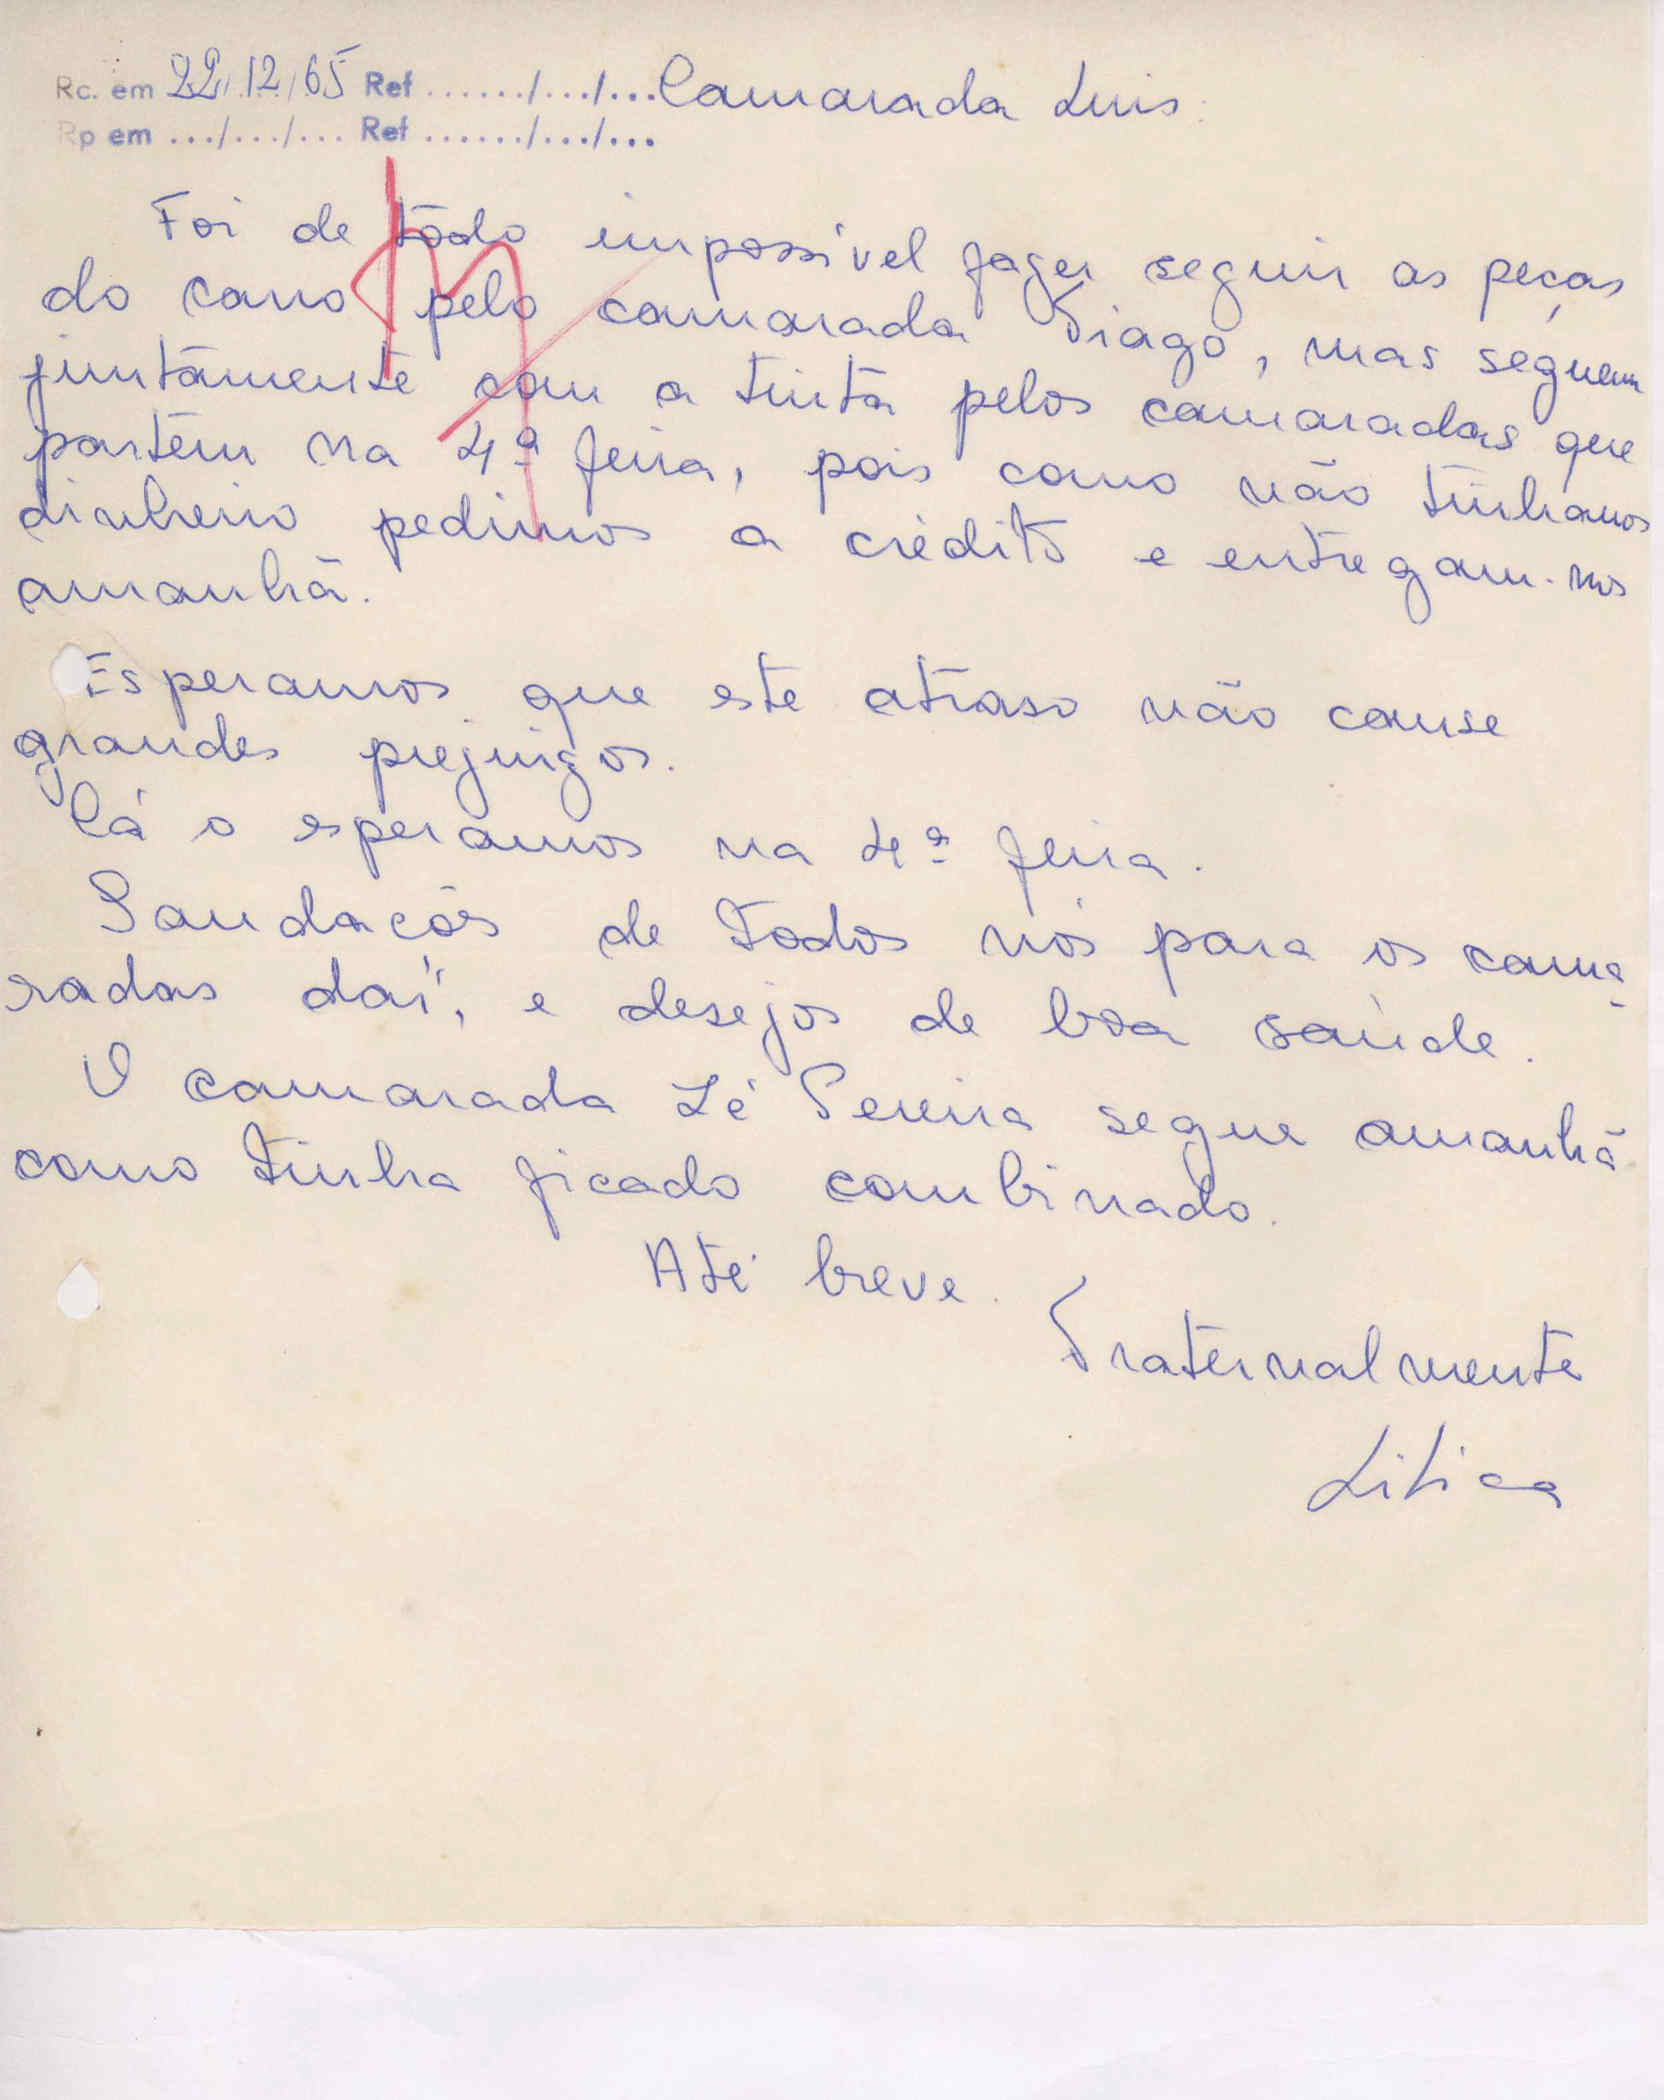 Rc. em 22/12/65 Ref ....../.../... Camarada Luis:
Rp em .../.../... Ref ....../.../...
Foi de todo impossível fazer seguir as peças
do carro pelo camarada Tiago, mas seguem
juntamente com a tinta pelos camaradas que
partem na 4ª feira, pois como não tinhamos
dinheiro pedimos a crédito e entregam-nos
amanhã.
Esperamos que este atraso não cause
grandes prejuizos.
Cá o esperamos na 4ª feira.
Saudacões de todos nós para os cama
radas daí, e desejos de boa saúde.
O camarada Zé Pereira segue amanhã
como tinha ficado combinado.
Até breve.
Fraternalmente